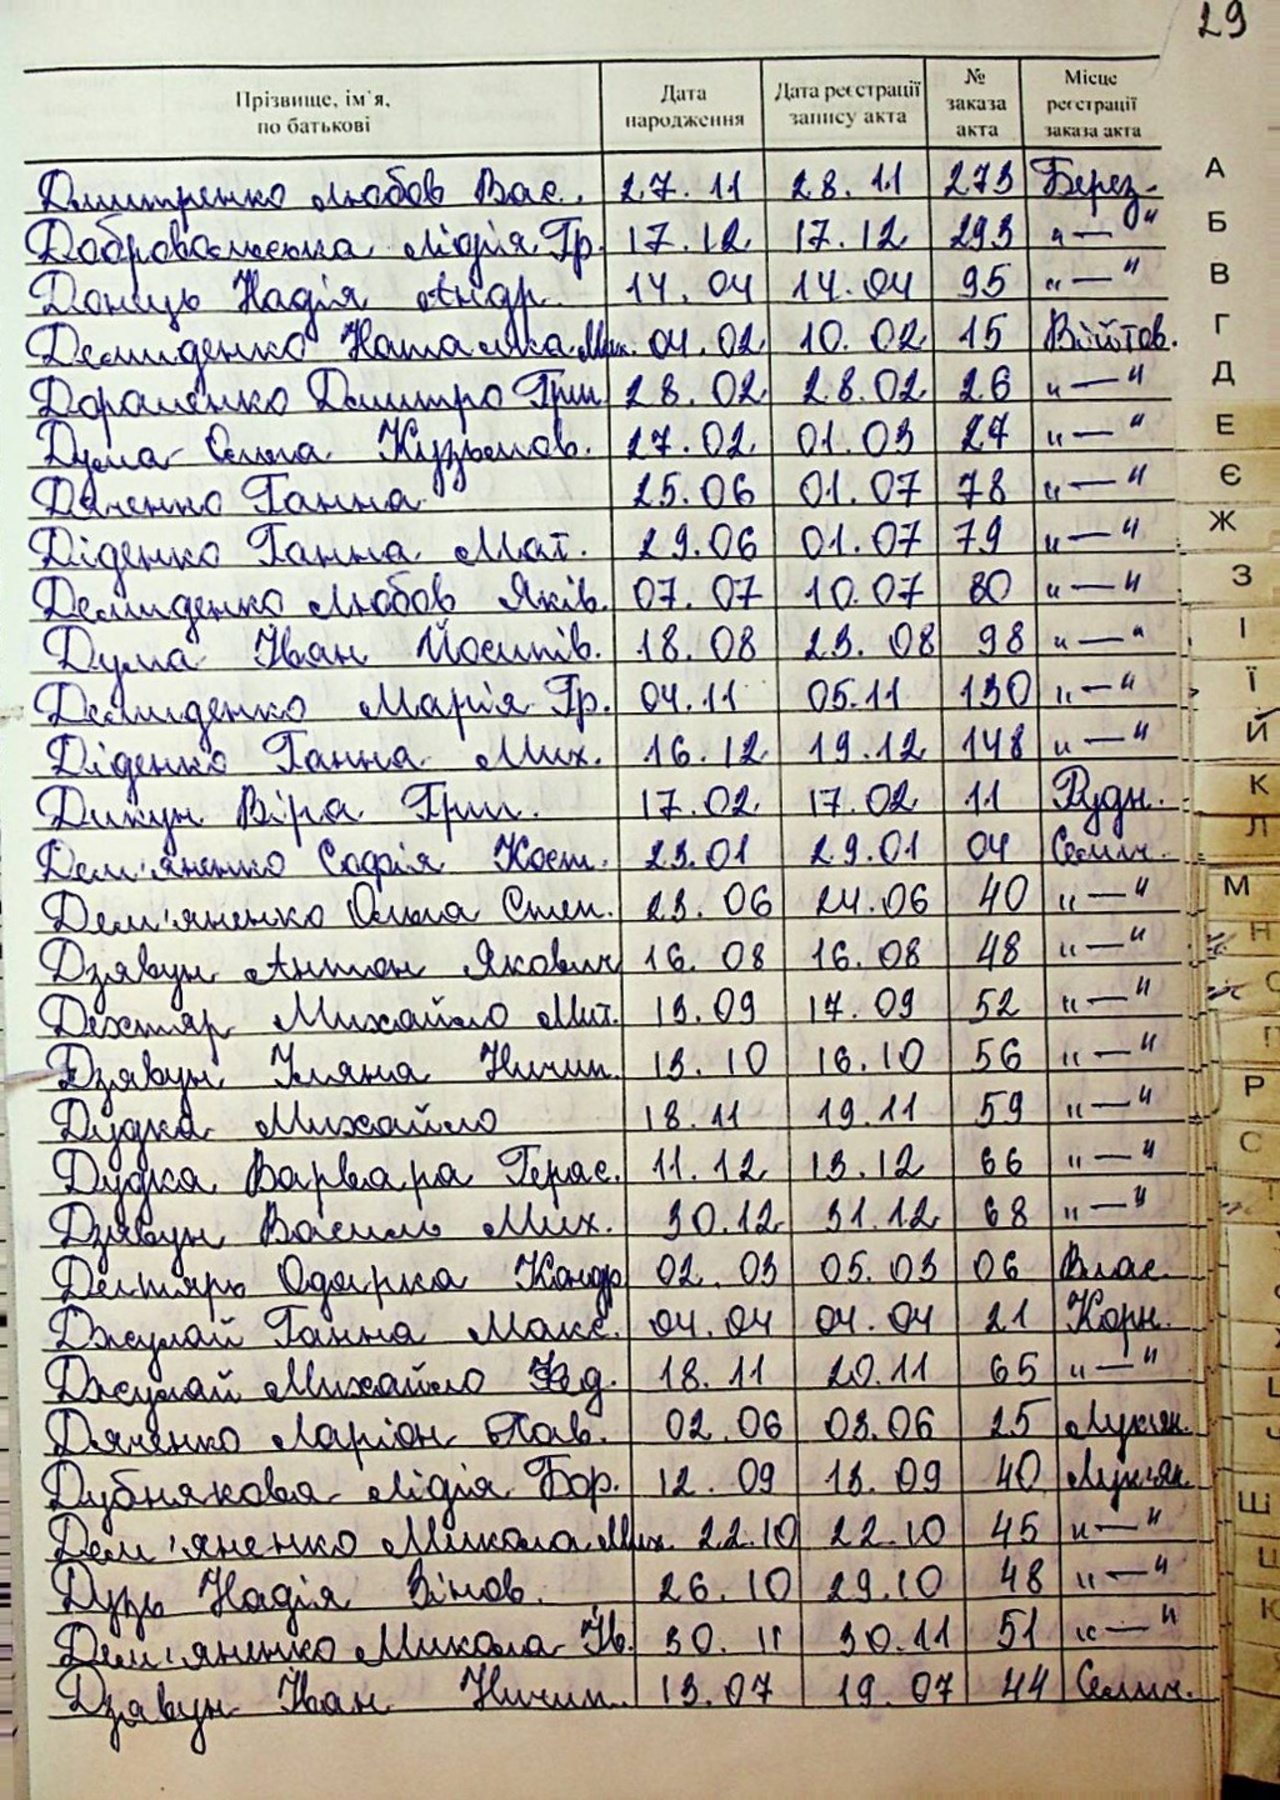 29
Прізвище, ім'я, по батькові | Дата народження | Дата реєстрації запису акта | № заказа акта | Місце реєстрації заказа акта
Дмитренко Любов Вас. 27.11 28.11 273 Берез.
Добровольська Лідія Гр. 17.12 17.12 293 "—"
Донець Надія Андр. 14.04 14.04 95 "—"
Демиденко Наталка Мих. 04.02 10.02 15 Війтов.
Дорошенко Дмитро Григ. 28.02 28.02 26 "—"
Дума Ольга Кузьмов. 27.02 01.03 27 "—"
Дяченко Ганна 25.06 01.07 78 "—"
Діденко Ганна Мат. 29.06 01.07 79 "—"
Демиденко Любов Яків. 07.07 10.07 80 "—"
Дума Іван Йосипів. 18.08 23.08 98 "—"
Демиденко Марія Гр. 04.11 05.11 130 "—"
Діденко Ганна Мих. 16.12 19.12 148 "—"
Дикун Віра Григ. 17.02 17.02 11 Рудн.
Дем'яненко Софія Кост. 23.01 29.01 04 Семич.
Дем'яненко Ольга Степ. 23.06 24.06 40 "—"
Дзявун Антон Якович 16.08 16.08 48 "—"
Дехтяр Михайло Мит. 13.09 17.09 52 "—"
Дзявун Уляна Ничип. 13.10 16.10 56 "—"
Дудка Михайло 18.11 19.11 59 "—"
Дудка Варвара Герас. 11.12 13.12 66 "—"
Дзявун Василь Мих. 30.12 31.12 68 "—"
Дегтярь Одарка Кондр 02.03 05.03 06 Влас.
Джулай Ганна Макс. 04.04 04.04 21 Корн.
Джулай Михайло 18.11 20.11 65 "—"
Дяченко Ларіон Пав. 02.06 03.06 25 Лук'ян.
Дубнякова Лідія Бор. 12.09 13.09 40 Лук'ян.
Дем'яненко Микола Мих. 22.10 22.10 45 "—"
Дузь Надія Зінов. 26.10 29.10 48 "—"
Дем'яненко Микола Ів. 30.11 30.11 51 "—"
Дзявун Іван Ничип. 13.07 19.07 44 Семич.
А
Б
В
Г
Д
Е
Є
Ж
З
І
Ї
Й
К
Л
М
Н
О
П
Р
С
Ш